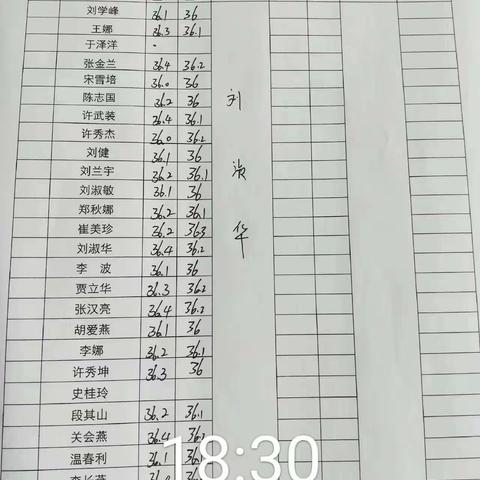 刘学峰 36.1 36
王娜 36.3 36.1
于泽洋 -
张金兰 36.4 36.2
宋雪培 36.0 36
陈志国 36.2 36
许武装 36.4 36.1
许秀杰 36.0 36.2
刘健 36.1 36
刘兰宇 36.2 36.1
刘淑敏 36.1 36
郑秋娜 36.2 36.1
崔美珍 36.2 36.3
刘淑华 36.4 36.2
李 波 36.1 36
贾立华 36.3 36.2
张汉亮 36.4 36.2
胡爱燕 36.1 36
李娜 36.2 36.1
许秀坤 36.3 36
史桂玲
段其山 36.2 36.1
关会燕 36.4
温春利 36.1
刘
华
18:30